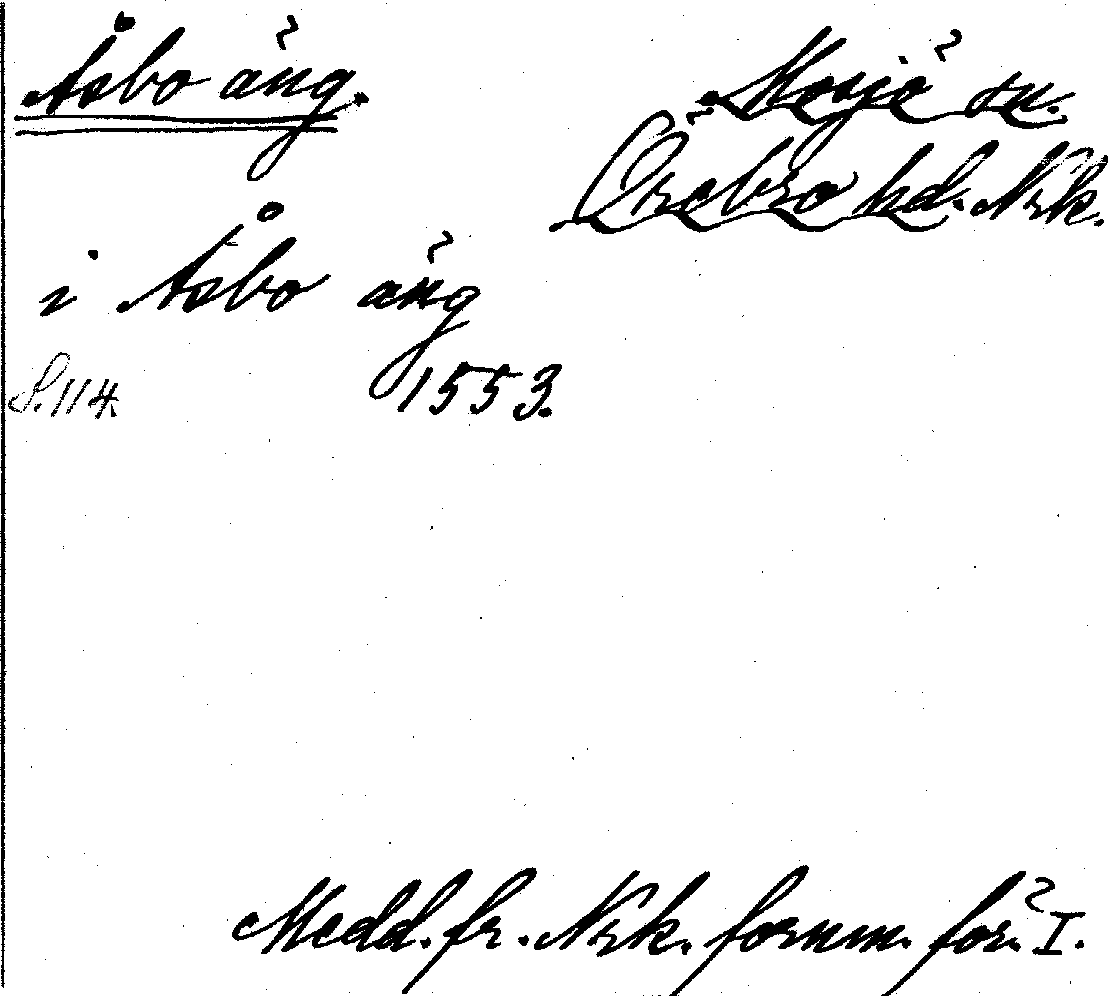 Åsbo äng.
Mosjö sn.
Örebro hd. Nrk.
i Åsbo äng
S. 114. 1553.
Medd. fr. Nrk. fornm. för. I.